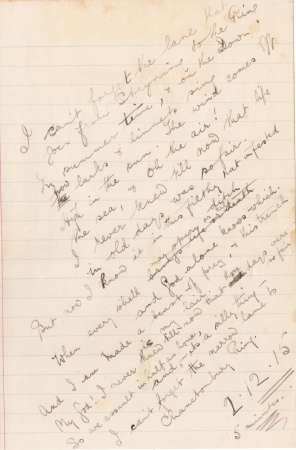 I can't forget the lane that
goes from Steyning to the Ring
In summer time, & on the Down
how larks & linnets sing
High in the sun. The wind comes off
the sea, & Oh the air!
I never knew till now that life
in old days was so fair.
But now I know it in this filthy rat infested
ditch
When every shell
and God alone knows which.
And I am made a beast of prey, & this trench
my lair.
My God! I never knew till now that those days were
so fair.
So we assault in half an hour,
and,—it's a silly thing—
I can't forget the narrow lane to
Chanctonbury Ring.
2.12.15
5 minutes.